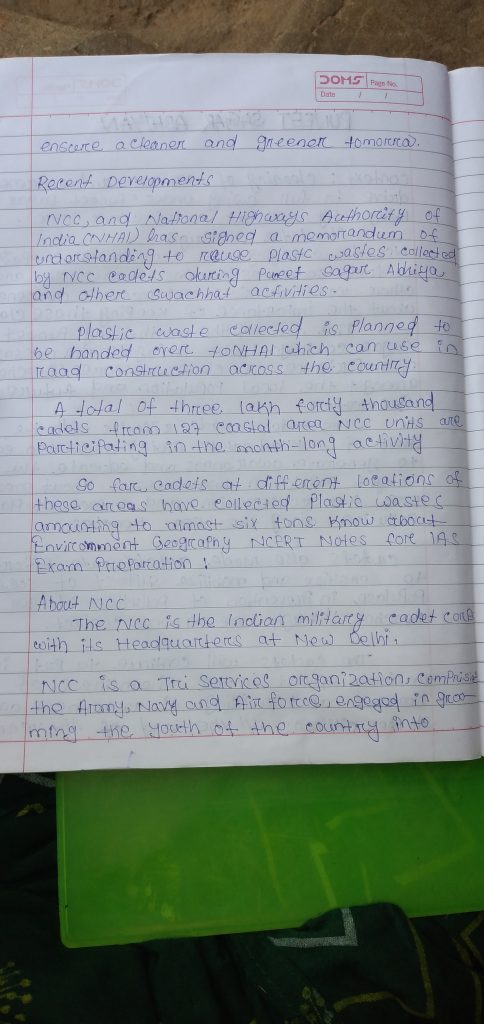 DOMS
Page No.
Date / /
ensure a cleaner and greener tomorrow.
Recent Developments
NCC, and National Highways Authority of
India (NHAI) has signed a memorandum of
understanding to reuse plastc wastes collected
by NCC cadets during Puneet Sagar Abhiya
and other Swachhat activities.
Plastic waste collected is Planned to
be handed over toNHAI which can use in
road construction across the country
A total of three lakh forty thousand
cadets from 127 coastal area NCC units are
Participating in the month-long activity
So far, cadets at different locations of
these areas have collected Plastic wastes
amounting to almost six tons Know about
Environment Geography NCERT Notes fore IAS
Exam Preparation :
About NCC
The NCC is the Indian military cadet corps
with its Headquarters at New Delhi.
NCC is a Tri Services organization, Comprising
the Army, Navy and Air force, engeged in groo-
ming the youth of the country into